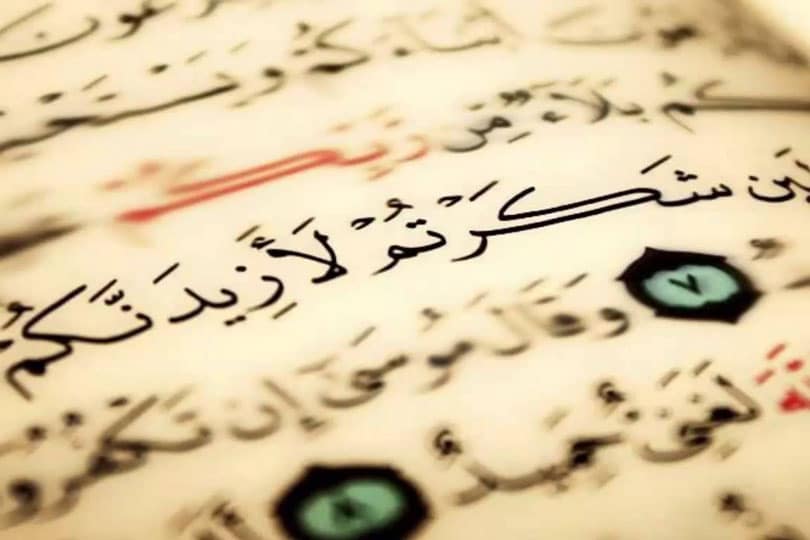 رعون
ون أَبۡنَآءَكُمۡ وَيَسۡتَحۡيـ
كُم بَلَآءٞ مِّن رَّبِّكُـ
لَئِن شَكَرۡتُمۡ لَأَزِيدَنَّكُمۡ
٧ وَقَالَ مُوسَىٰٓ إِن تَكۡفُرُوٓ
لَغَنِيٌّ حَمِيدٌ ٨